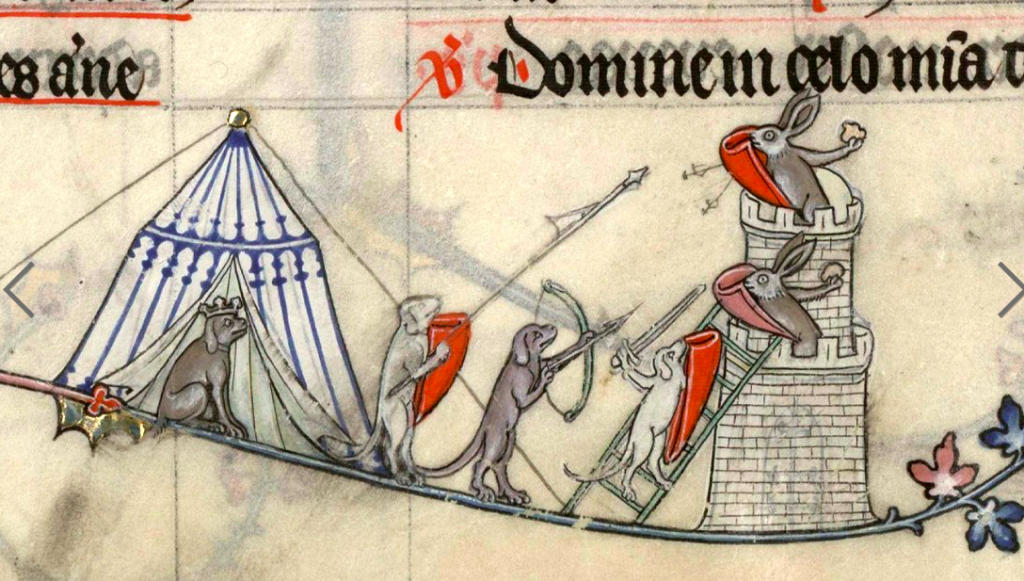 es a'ne
℣ Domine in celo mīa t